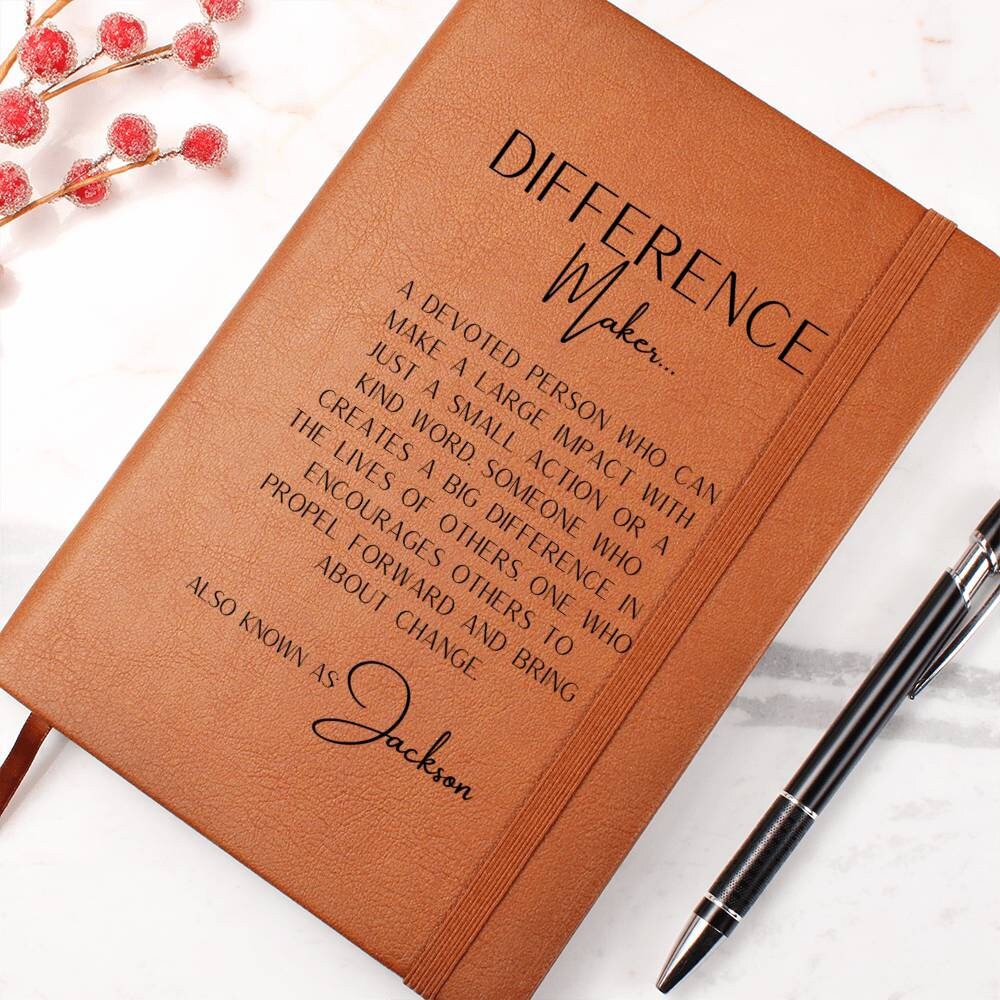 DIFFERENCE
Maker...
A DEVOTED PERSON WHO CAN
MAKE A LARGE IMPACT WITH
JUST A SMALL ACTION OR A
KIND WORD. SOMEONE WHO
CREATES A BIG DIFFERENCE IN
THE LIVES OF OTHERS. ONE WHO
ENCOURAGES OTHERS TO
PROPEL FORWARD AND BRING
ABOUT CHANGE.
ALSO KNOWN AS Jackson